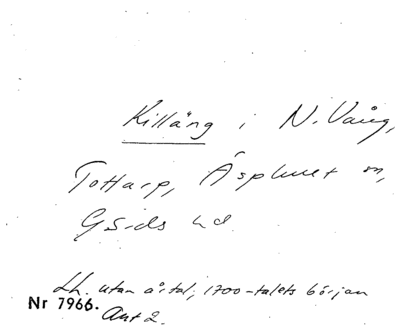 Killäng i N. Vång,
Tottarp, Äsphult sn,
Gärds hd.
Lh. utan årtal, 1700-talets början
Nr 7966.
Avt 2.